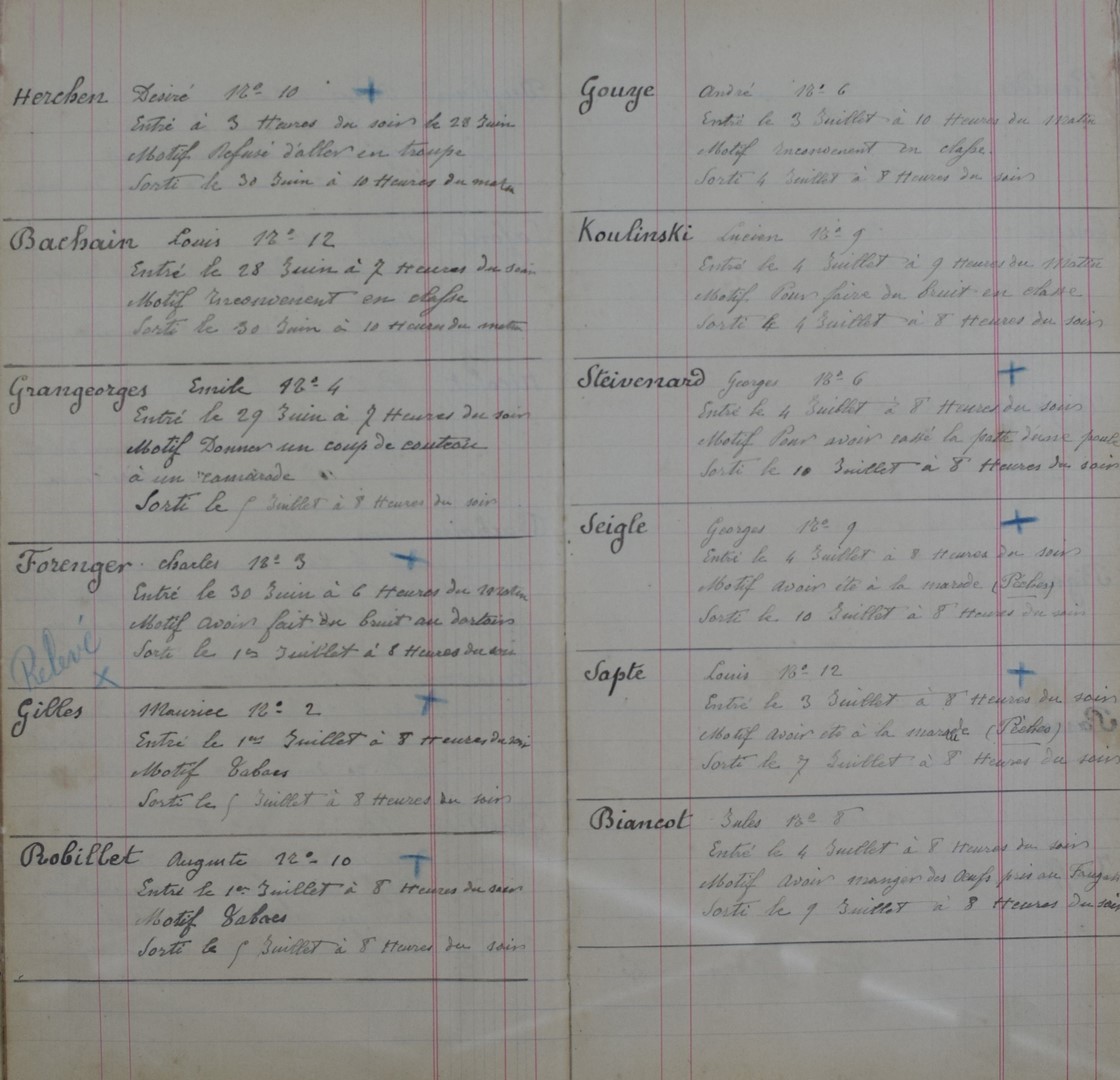 Herchen Desiré No 10
Entré à 3 Heures du soir le 28 Juin
Motif Refusé d'aller en troupe
Sorti le 30 Juin à 10 Heures du matin
Bachain Louis No 12
Entré le 28 Juin à 7 Heures du soir
Motif Inconvenent en classe
Sorti le 30 Juin à 10 Heures du matin
Grangeorges Emile No 4
Entré le 29 Juin à 7 Heures du soir
Motif Donner un coup de couteau
à un camarade
Sorti le 5 Juillet à 8 Heures du soir
Forenger charles No 3
Entré le 30 Juin à 6 Heures du matin
Motif Avoir fait du bruit au dortoir
Sorti le 1er Juillet à 8 Heures du soir
Relevé
Gilles Maurice No 2
Entré le 1er Juillet à 8 Heures du soir
Motif Tabacs
Sorti le 5 Juillet à 8 Heures du soir
Robillet Auguste No 10
Entré le 1er Juillet à 8 Heures du soir
Motif Tabacs
Sorti le 5 Juillet à 8 Heures du soir
Gouye André No 6
Entré le 3 Juillet à 10 Heures du Matin
Motif Inconvenent en classe.
Sorti 4 Juillet à 8 Heures du soir
Koulinski Lucien No 9
Entré le 4 Juillet à 9 Heures du Matin
Motif Pour faire du bruit en classe
Sorti le 4 Juillet à 8 Heures du soir
Steivenard Georges No 6
Entré le 4 Juillet à 8 Heures du soir
Motif Pour avoir cassé la patte d'une poule
Sorti le 10 Juillet à 8 Heures du soir
Seigle Georges No 9
Entré le 4 Juillet à 8 Heures du soir
Motif Avoir été à la marode (Pêches)
Sorti le 10 Juillet à 8 Heures du soir
Sapte Louis No 12
Entré le 3 Juillet à 8 Heures du soir
Motif Avoir été à la marode (Pêches)
Sorti le 7 Juillet à 8 Heures du soir
Biancot Jules No 8
Entré le 4 Juillet à 8 Heures du soir
Motif Avoir manger des Œufs pris au
Sorti le 9 Juillet à 8 Heures du soir